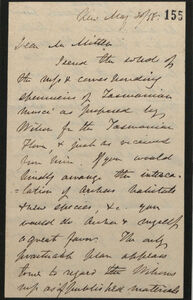 Kew May 30/58. 155
Dear Mr Mitten
I send the
of
the mss & corresponding
specimens of Tasmanian
Musci as proposed by
Wilson for the Tasmanian
Flora, & just as received
from him. If you would
kindly arrange the
of Archers habitats
& new species &c. you
would do Archer & myself
a great favor. The only
practicable plan appears
to me to regard the Wilsons
mss as if published materials